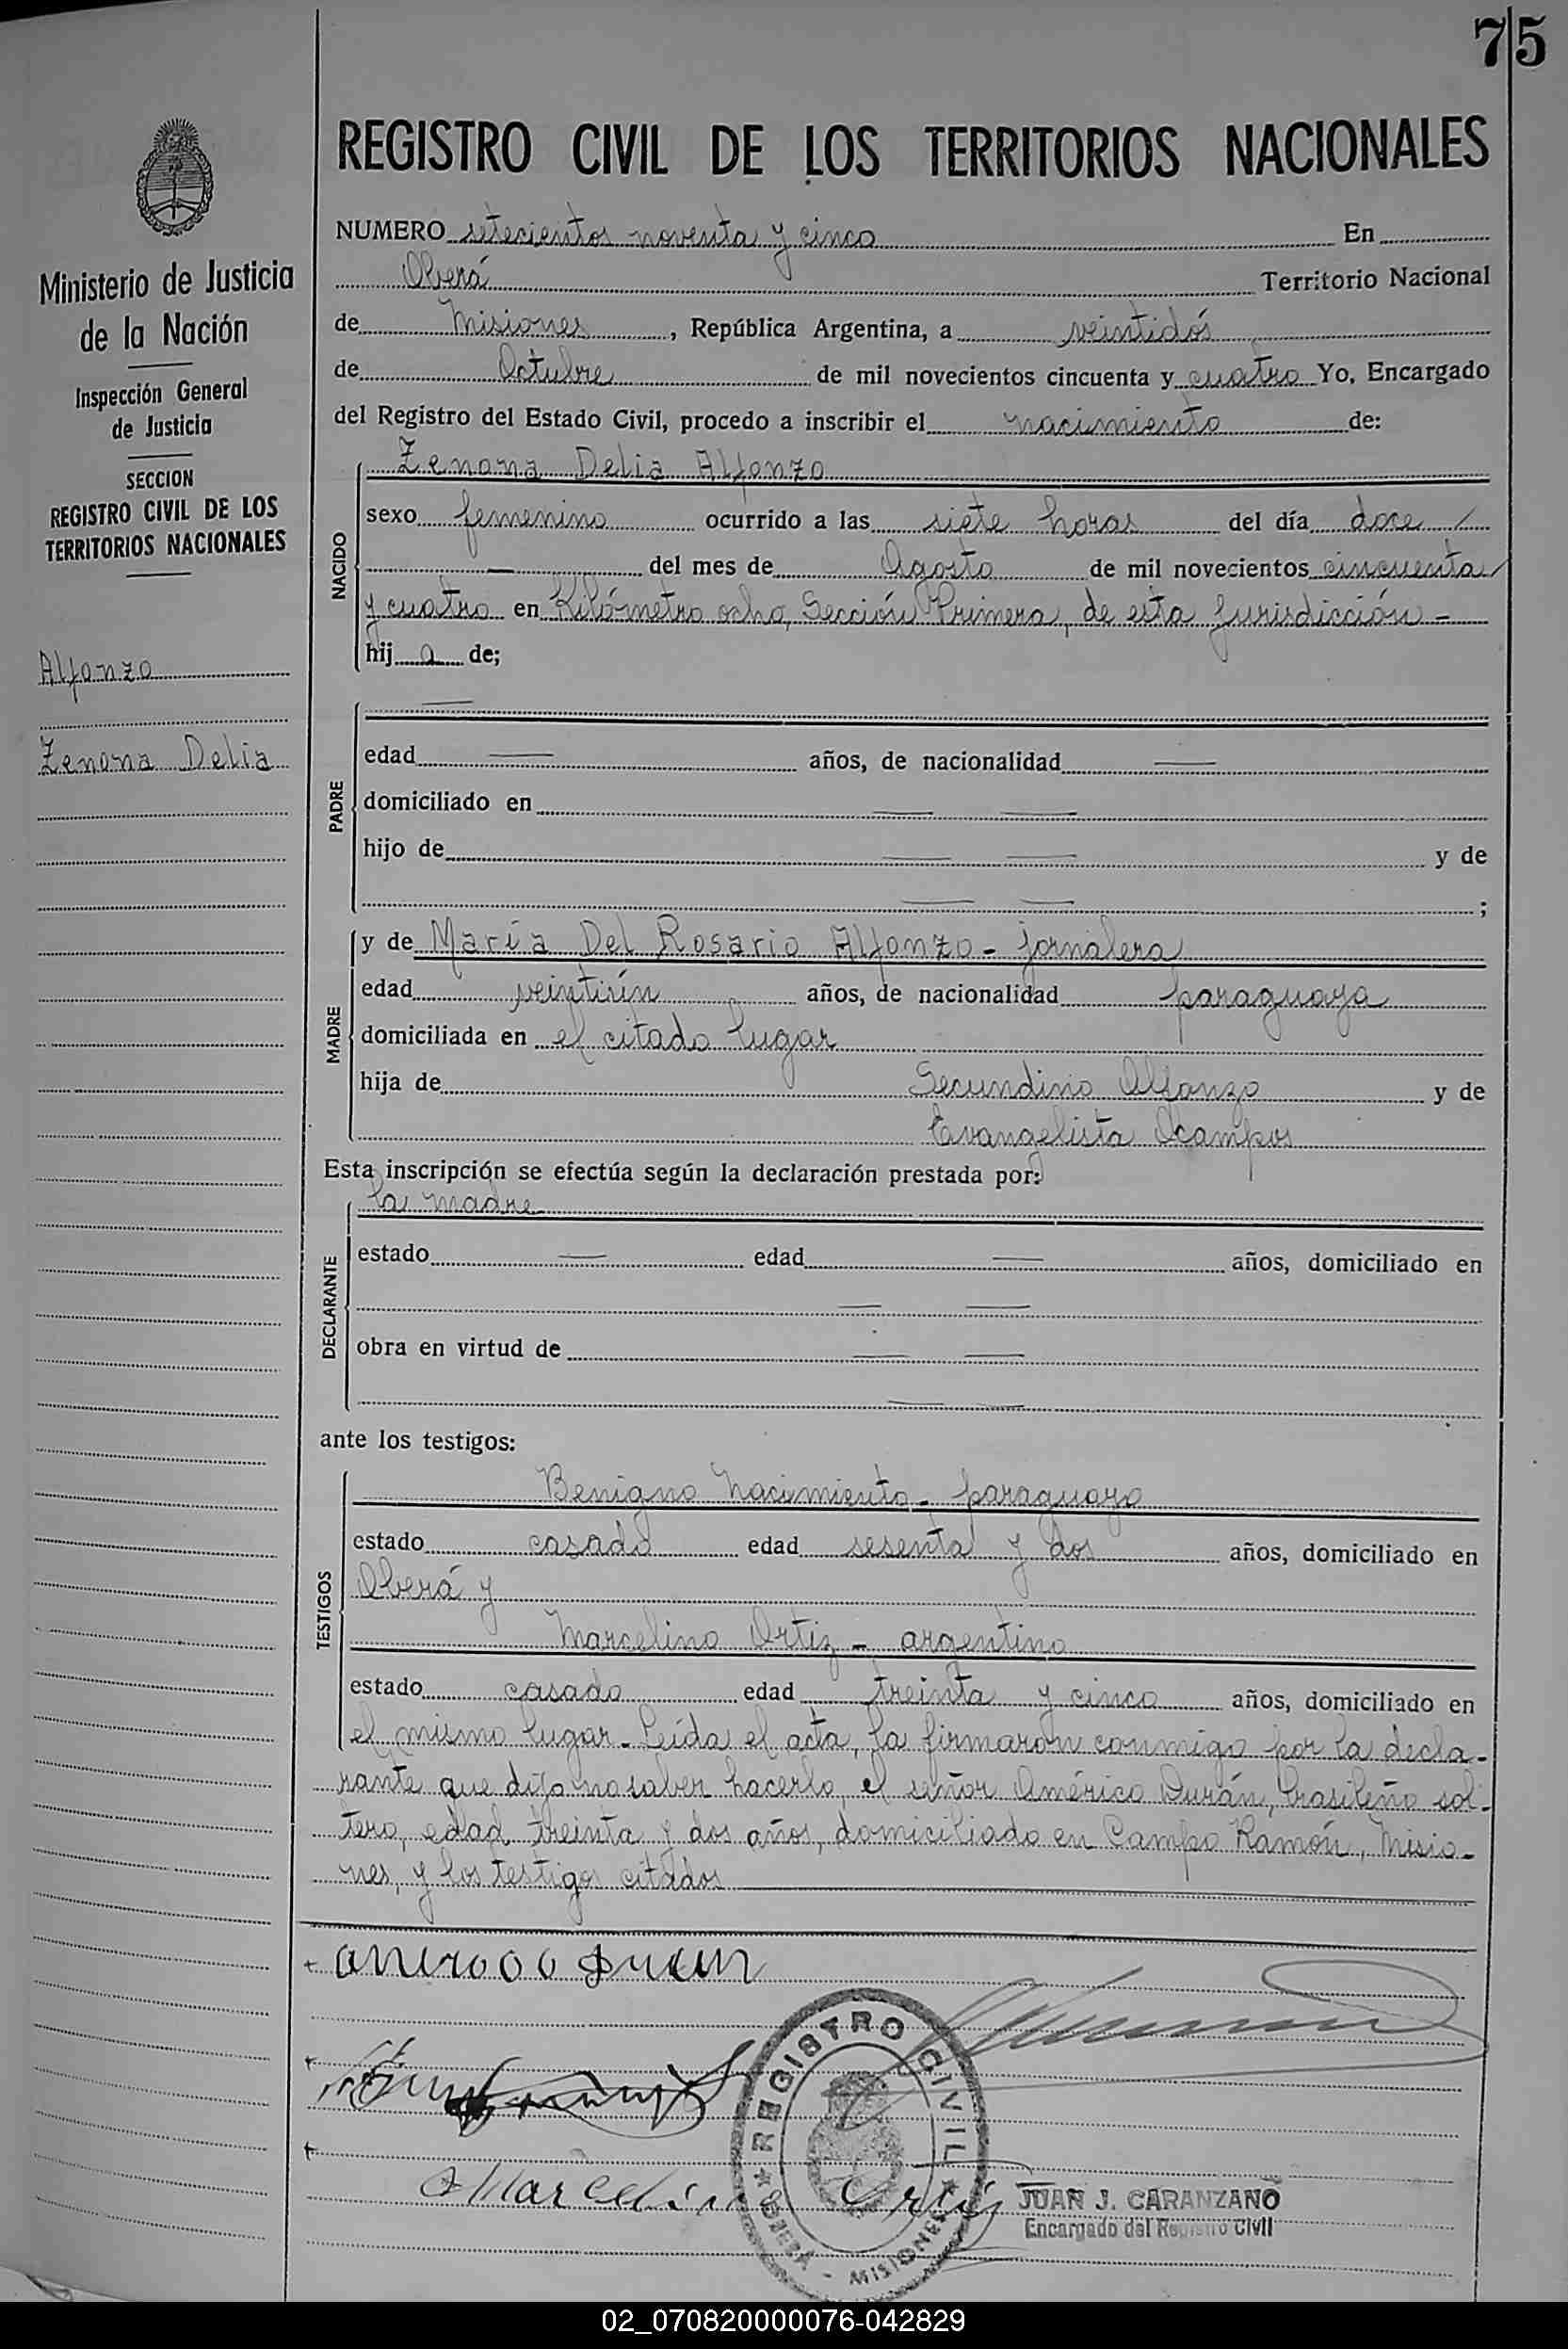 75
REGISTRO CIVIL DE LOS TERRITORIOS NACIONALES
Ministerio de Justicia
de la Nación
Inspección General
de Justicia
SECCION
REGISTRO CIVIL DE LOS
TERRITORIOS NACIONALES
Alfonzo
Zenona Delia
NUMERO setecientos noventa y cinco En
Oberá Territorio Nacional
de Misiones, República Argentina, a veintidós
de Octubre de mil novecientos cincuenta y cuatro Yo, Encargado
del Registro del Estado Civil, procedo a inscribir el nacimiento de:
NACIDO
Zenona Delia Alfonzo
sexo femenino ocurrido a las siete horas del día doce
— del mes de Agosto de mil novecientos cincuenta
y cuatro en Kilómetro ocho, Sección Primera, de esta jurisdicción -
hij a de;
PADRE
—
edad — años, de nacionalidad —
domiciliado en — —
hijo de — — y de
— — ;
MADRE
y de María Del Rosario Alfonzo - jornalera
edad veintiún años, de nacionalidad paraguaya
domiciliada en el citado lugar
hija de Secundino Alfonzo y de
Evangelista Ocampos
Esta inscripción se efectúa según la declaración prestada por:
DECLARANTE
la madre
estado — edad — años, domiciliado en
— —
obra en virtud de — —
— —
ante los testigos:
TESTIGOS
Benigno Nacimiento - paraguayo
estado casado edad sesenta y dos años, domiciliado en
Oberá y
Marcelino Ortiz - argentino
estado casado edad treinta y cinco años, domiciliado en
el mismo lugar - Leída el acta, la firmaron conmigo por la decla-
rante que dijo no saber hacerlo, el señor Américo Durán, brasileño sol-
tero, edad treinta y dos años, domiciliado en Campo Ramón, Misio-
nes, y los testigos citados
REGISTRO CIVIL
OBERÁ - MISIONES
Marcelino Ortiz
JUAN J. CARANZANO
Encargado del Registro Civil
02_070820000076-042829